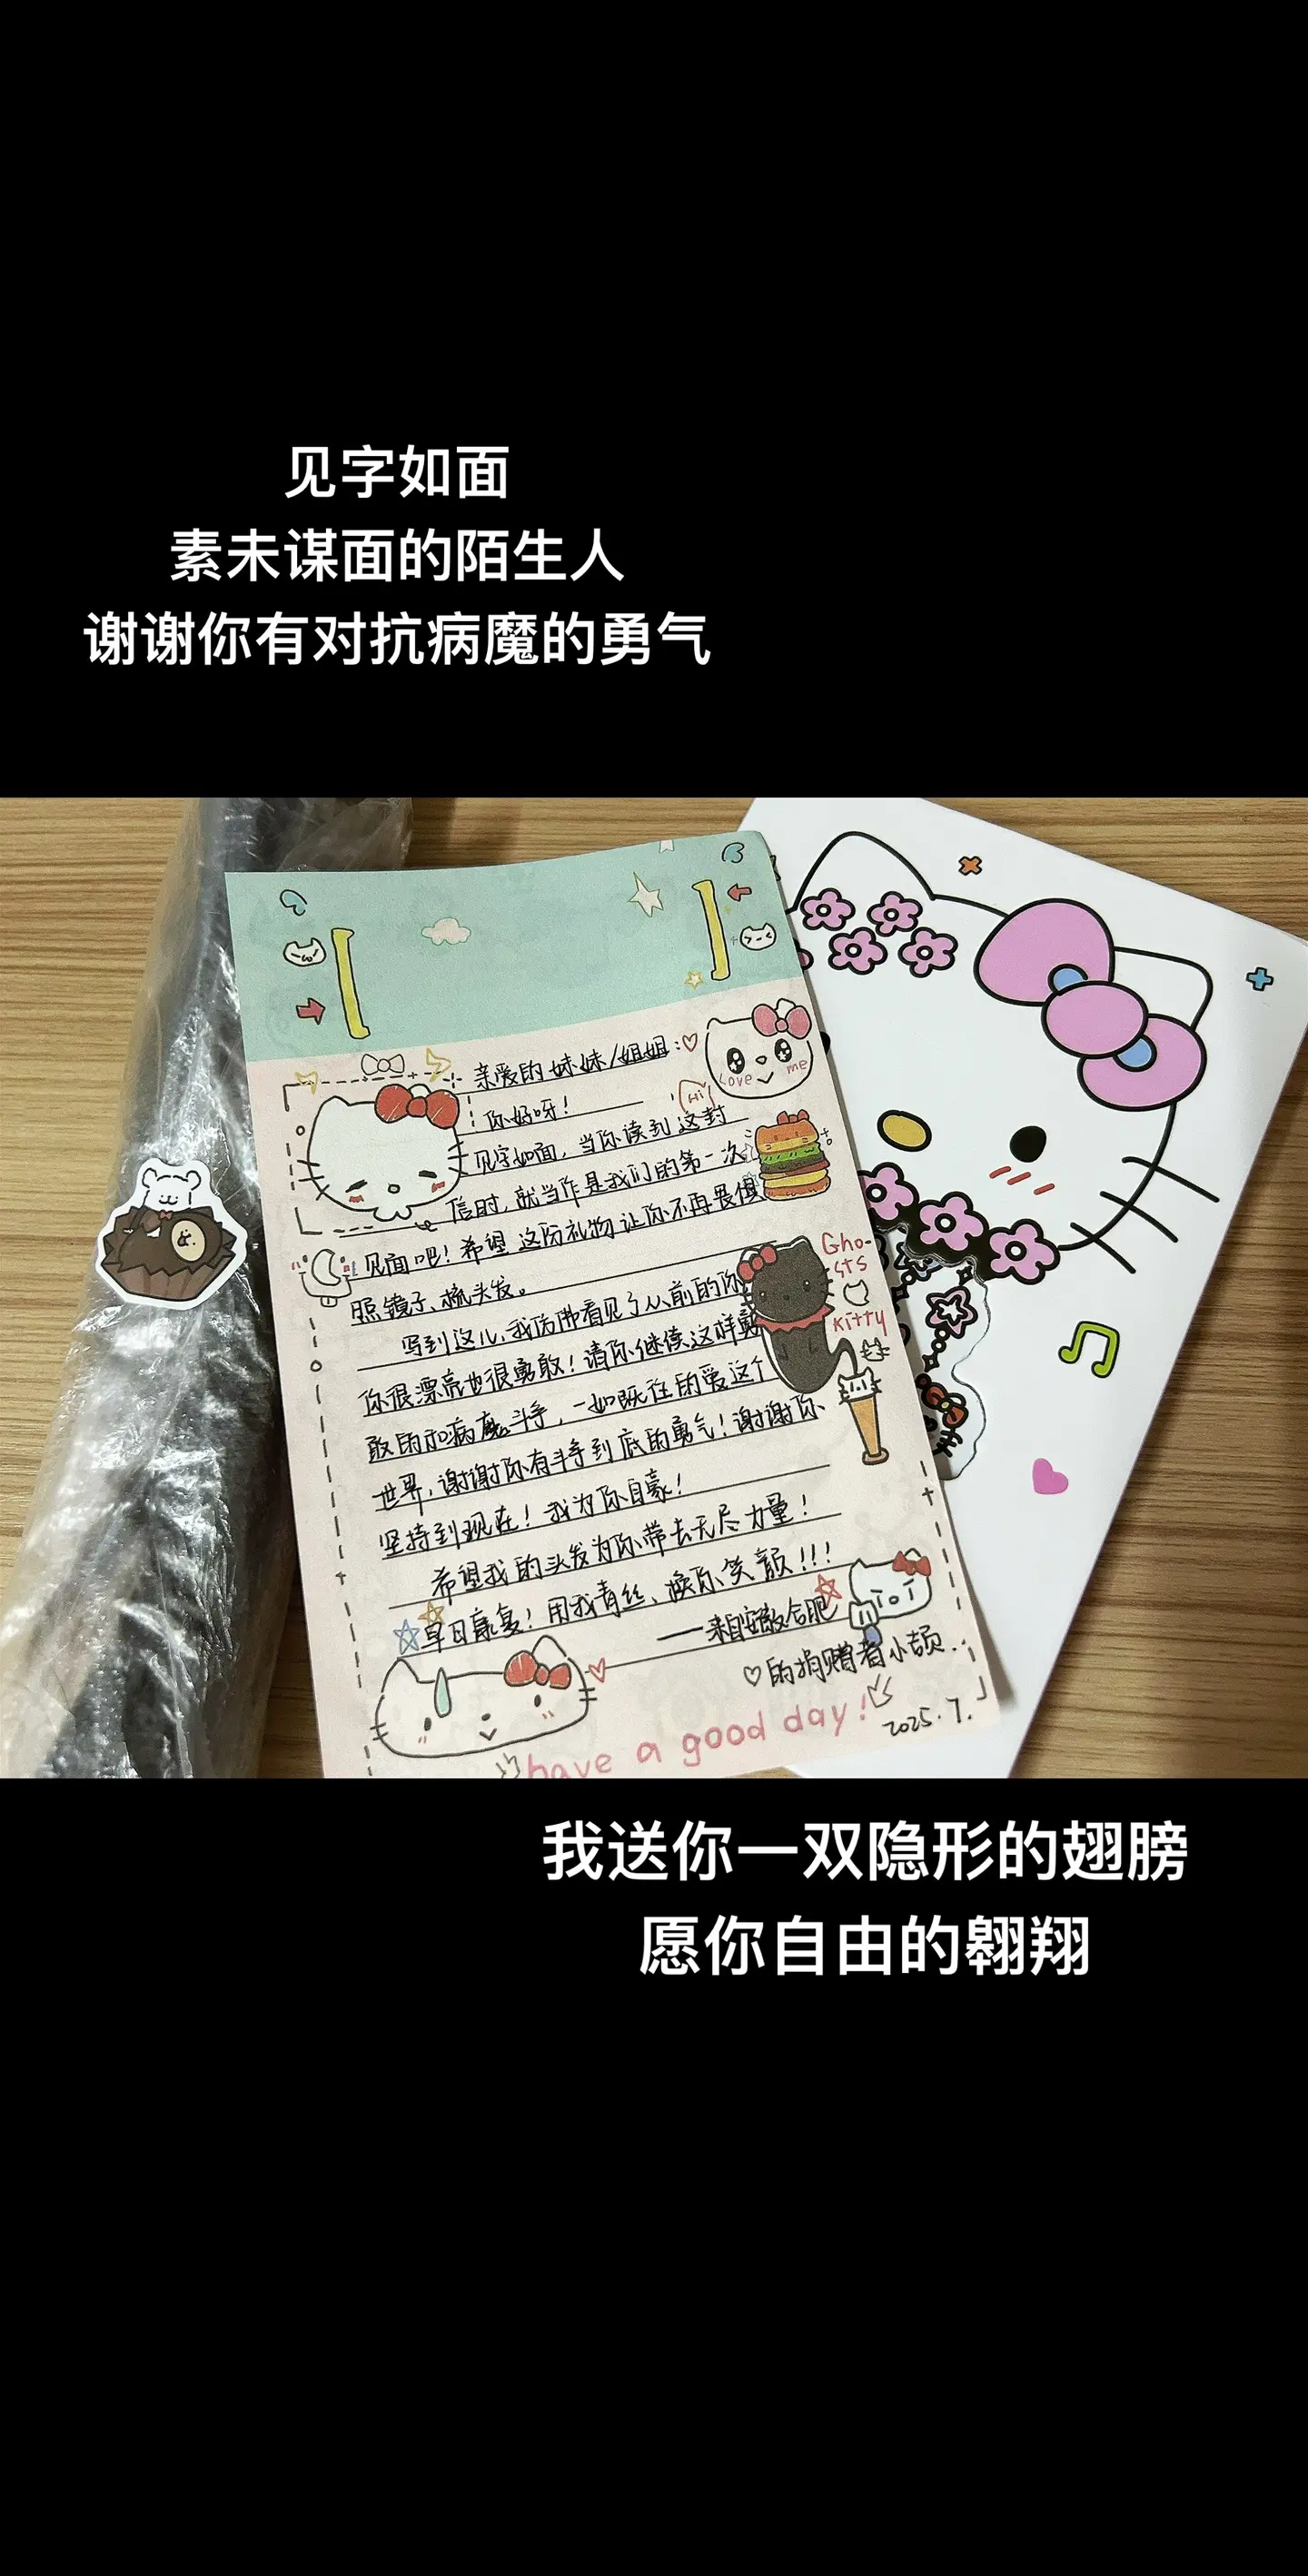 见字如面
素未谋面的陌生人
谢谢你有对抗病魔的勇气
亲爱的妹妹/姐姐:
Love me
你好呀!
Hi
见字如面,当你读到这封
信时,就当作是我们的第一次
见面吧!希望这份礼物让你不再畏惧
照镜子、梳头发。
Gho-
sts
Kitty
写到这儿,我仿佛看见了从前的你
你很漂亮也很勇敢!请你继续这样勇
敢的和病魔斗争,一如既往的爱这个
世界,谢谢你有斗争到底的勇气!谢谢你
坚持到现在!我为你自豪!
希望我的头发为你带去无尽力量!
早日康复!用我青丝、换你笑颜!!!
——来自安徽合肥
的捐赠者小颉.
2025.7.
have a good day!
我送你一双隐形的翅膀
愿你自由的翱翔